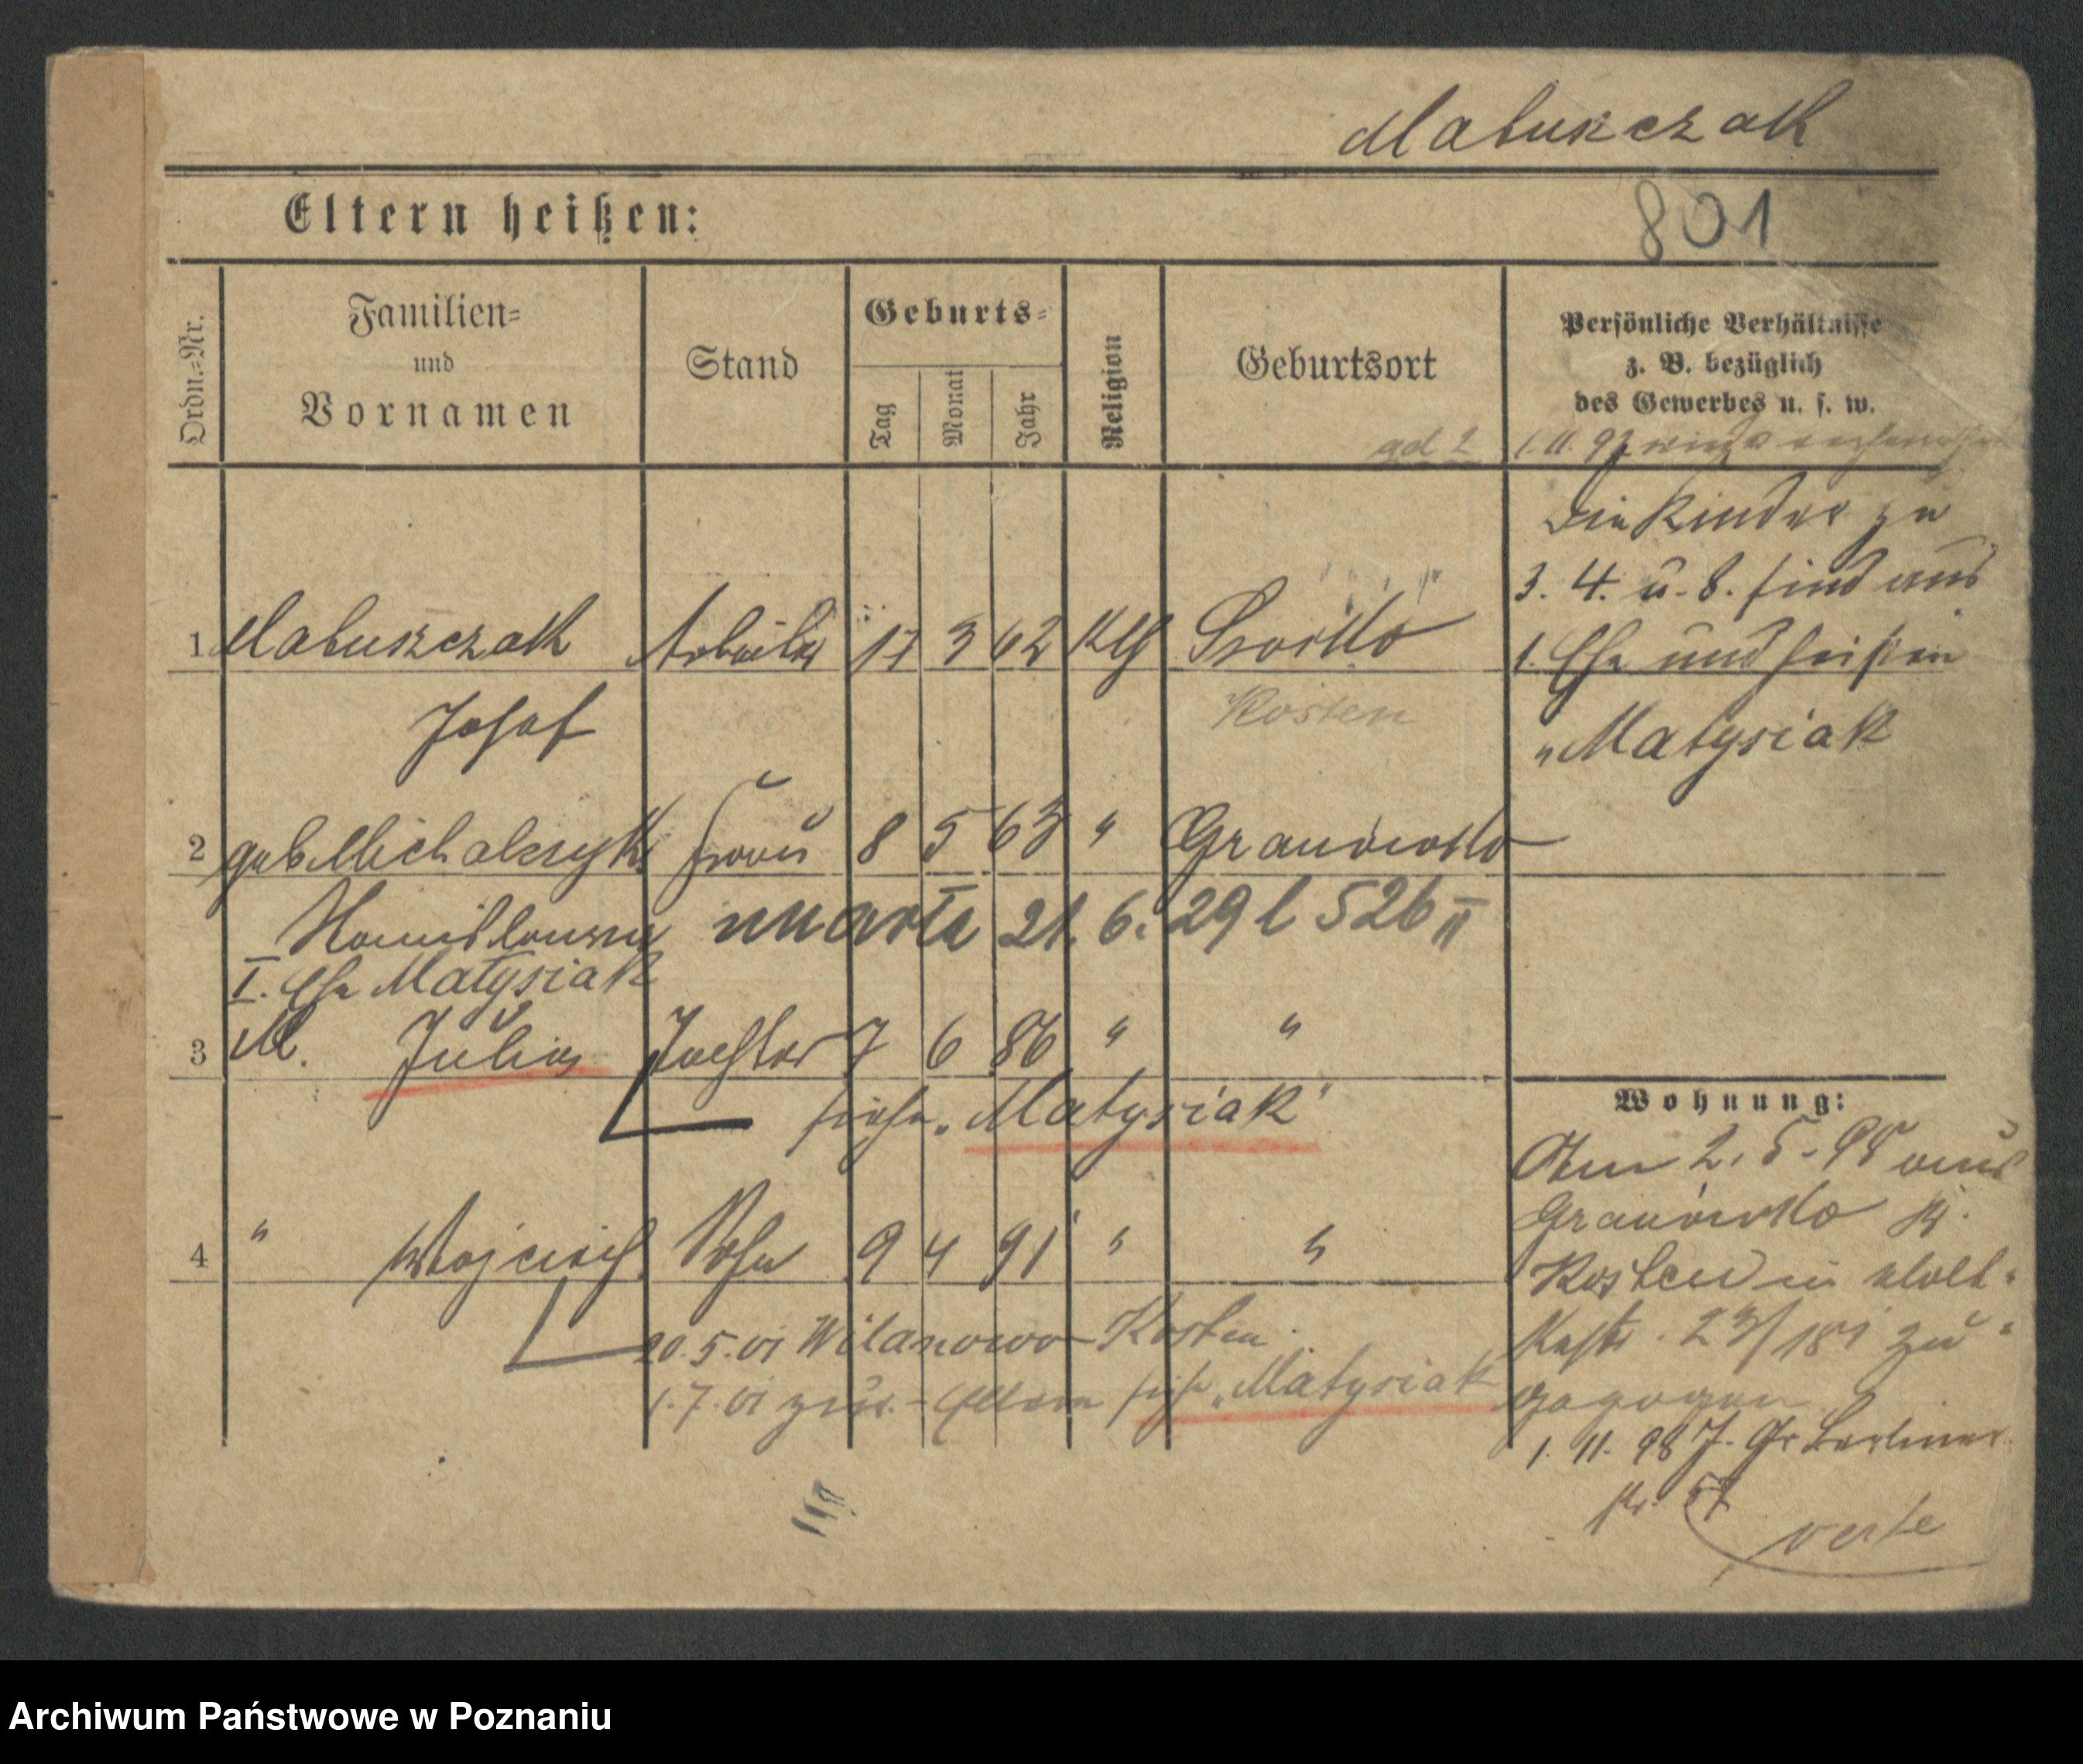 Matuszczak
801
Eltern heißen:
Ordn.-Nr.
Familien-
und
Vornamen
Stand
Geburts-
Tag
Monat
Jahr
Religion
Geburtsort
Persönliche Verhältnisse
z. B. bezüglich
des Gewerbes u. s. w.
ad 2
1.11.97
Die Kinder zu
3. 4. u. 8. sind aus
1. Ehe und heißen
„Matysiak
1 Matuszczak Arbeiter 17 3 62 kth
Josef
Kosten
2 geb. Michalczyk Frau 8 5 63 " Granówko
Stanislawa
umarła 21. 6. 29 l 526 II
I. Ehe Matysiak
3 M. Julia Tochter 7 6 86 " "
siehe „Matysiak"
4 " Wojciech Sohn 9 4 91 " "
20.5.01 Wilanowo Kosten
1.7.01 zur. - Eltern siehe „Matysiak
Wohnung:
Am 2. 5. 98 aus
Granówko Kr.
Kosten in
23/181 zu-
gezogen
1. 11. 98 J. Gr. Berliner
str. 57
verte
Archiwum Państwowe w Poznaniu